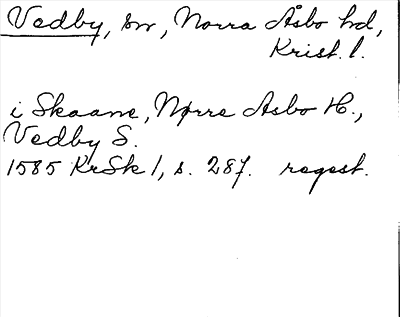 Vedby, sn, Norra Åsbo hd,
Krist. l.
i Skaane, Nørre Asbo H.,
Vedby S.
1585 KrSk 1, s. 287. regest.